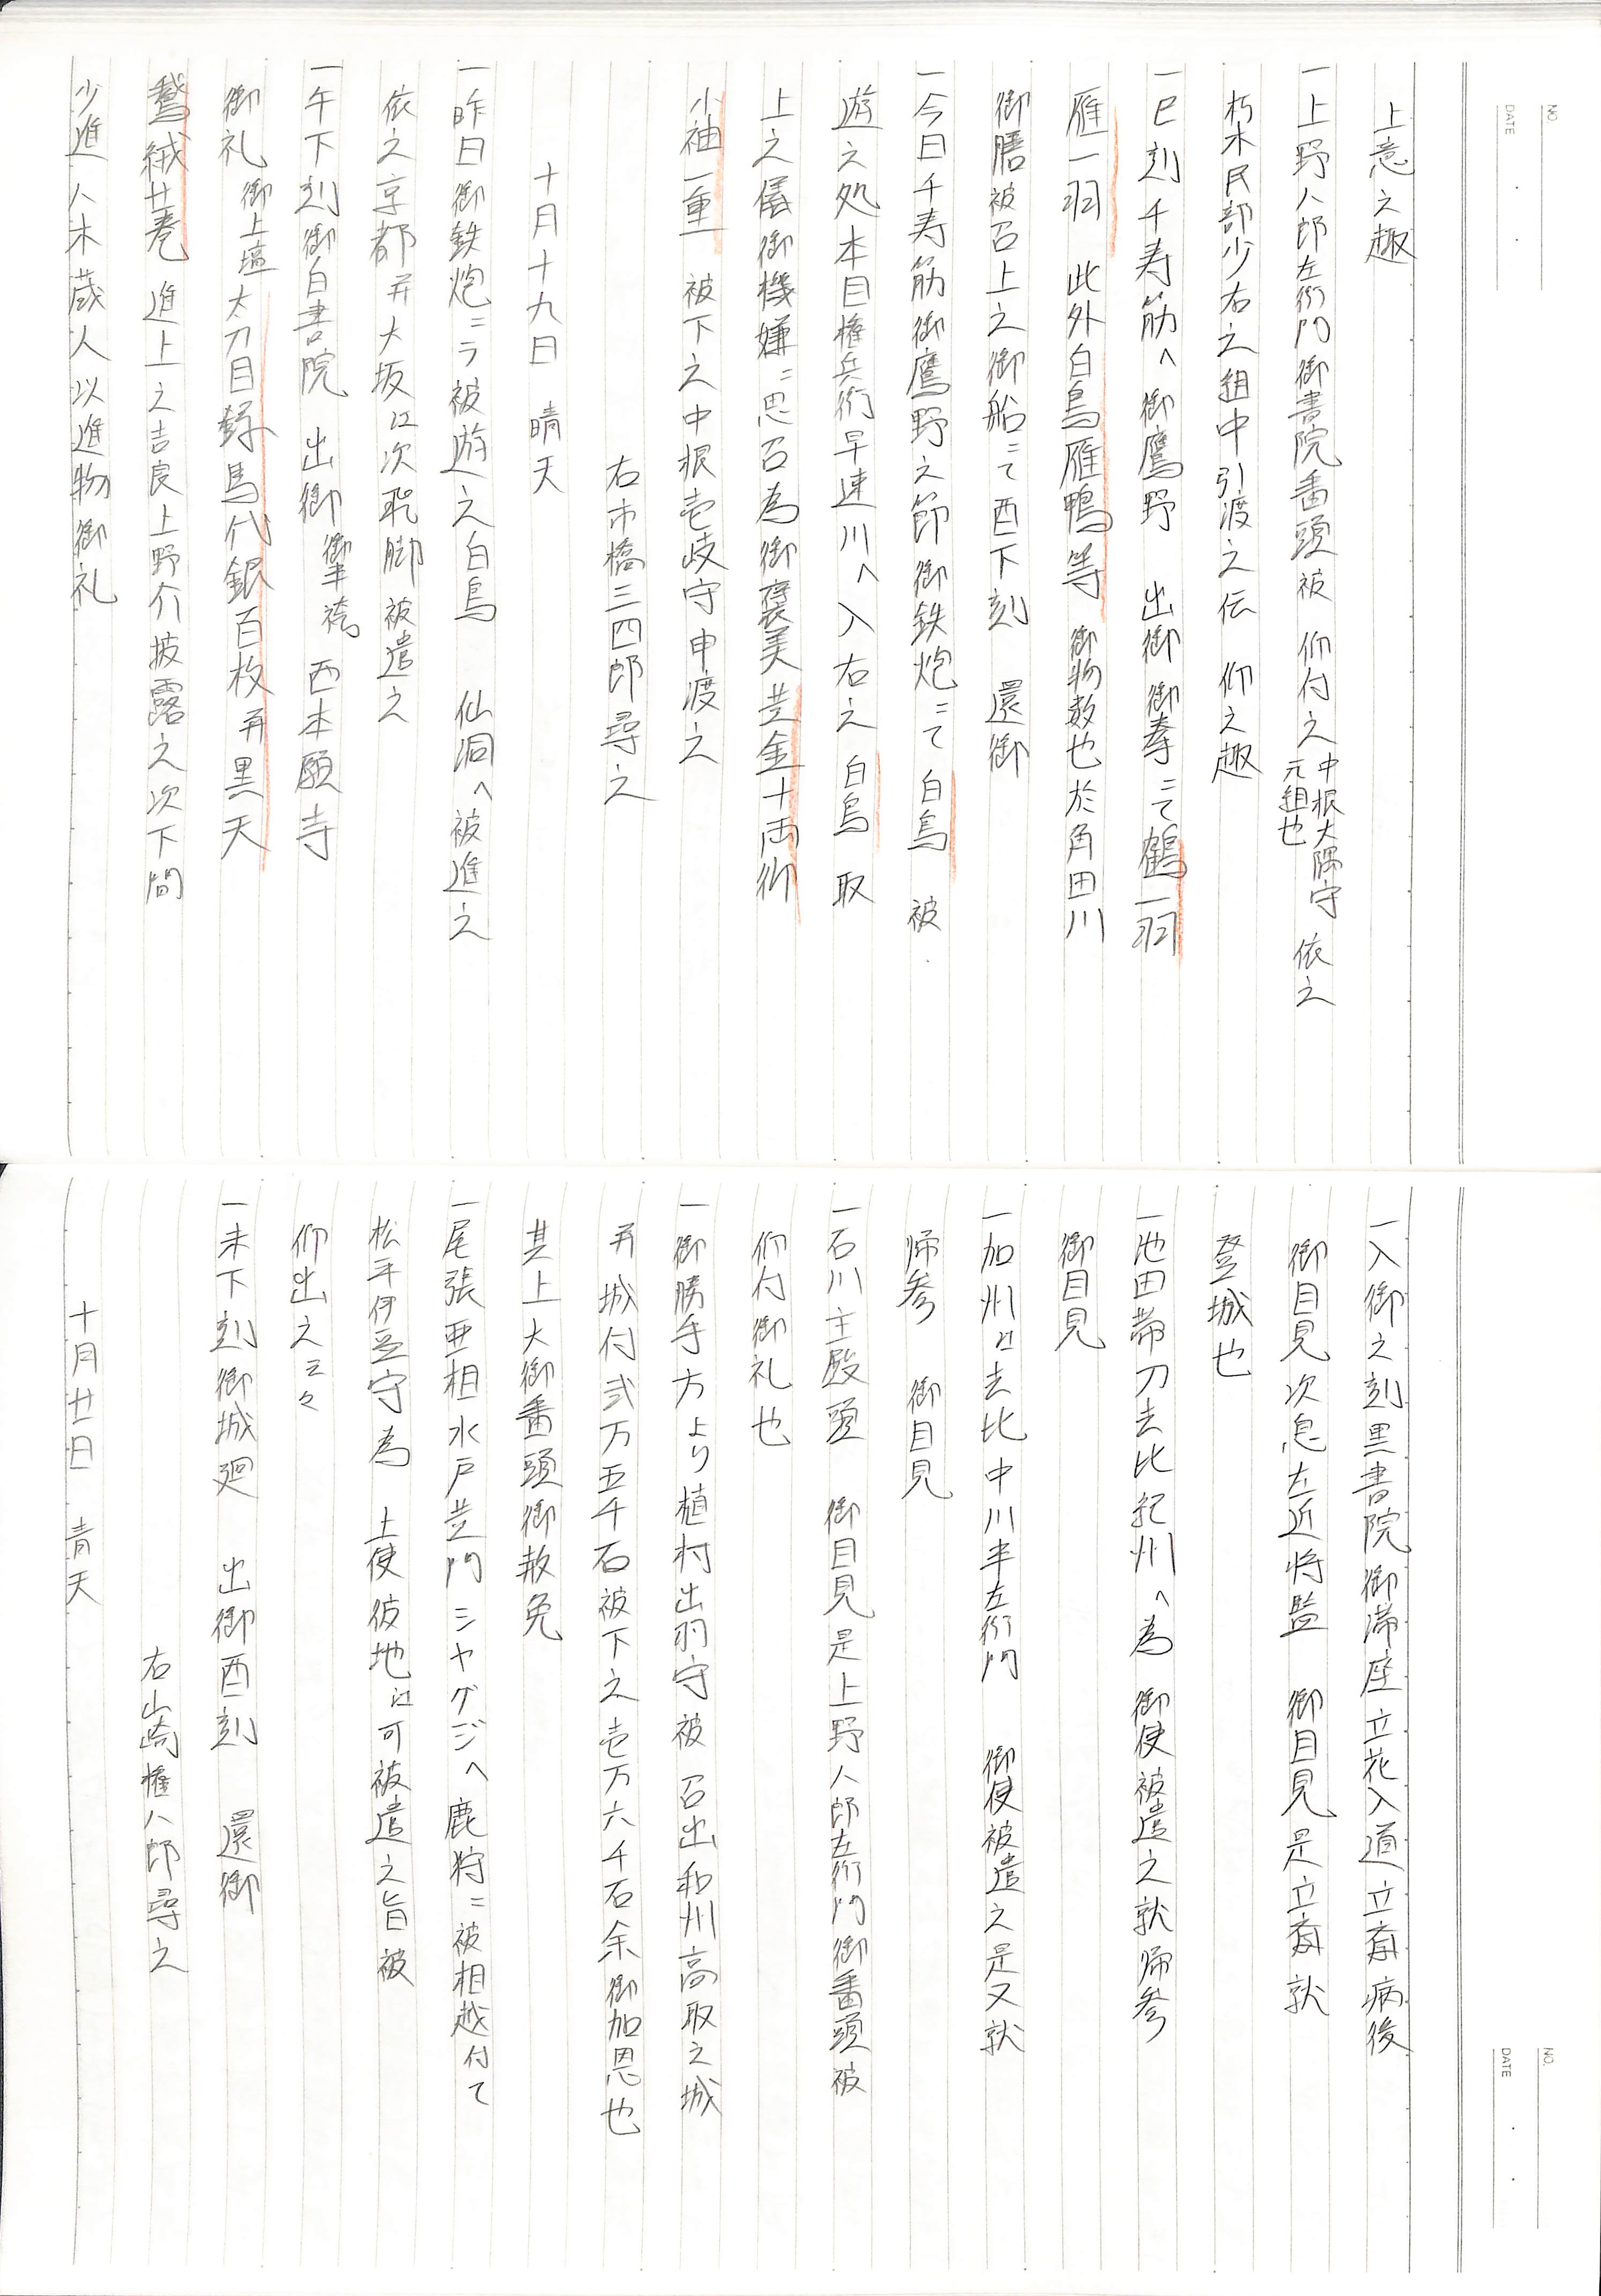 NO.
DATE
上意之趣
一上野八郎左衛門御書院番頭被 仰付之 中根大隅守元組也 依之
朽木民部少右之組中引渡之伝 仰之趣
一巳刻千寿筋へ御鷹野 出御 御拳ニて鶴一羽
雁一羽 此外白鳥雁鴨等 御物数也於角田川
御膳被召上之御船ニて酉下刻 還御
一今日千寿筋御鷹野之節御鉄炮ニて白鳥 被
遊之処本目権兵衛早速川へ入右之白鳥 取
上之儀御機嫌ニ思召為御褒美黄金十両御
小袖一重 被下之中根壱岐守申渡之
右市橋三四郎尋之
十月十九日 晴天
一昨日御鉄炮ニテ被遊之白鳥 仙洞へ被進之
依之京都并大坂江次飛脚被遣之
一午下刻御白書院 出御 御半袴 西本願寺
御礼 御上壇 太刀目録馬代銀百枚并黒天
鵞絨廿巻 進上之吉良上野介披露之次下間
少進八木蔵人以進物御礼
NO.
DATE
一入御之刻黒書院御滞座立花入道立斎病後
御目見次息左近将監 御目見是立斎就
登城也
一池田帯刀去比紀州へ為 御使被遣之就帰参
御目見
一加州江去比中川半左衛門 御使被遣之是又就
帰参 御目見
一石川主殿頭 御目見是上野八郎左衛門御番頭被
仰付御礼也
一御勝手方より植村出羽守被 召出和州高取之城
并城付弐万五千石被下之壱万六千石余御加恩也
其上大御番頭御赦免
一尾張亜相水戸黄門シヤグジへ鹿狩ニ被相越付て
松平伊豆守為 上使彼地江可被遣之旨被
仰出之云々
一未下刻御城廻 出御酉刻 還御
右山崎権八郎尋之
十月廿日 青天